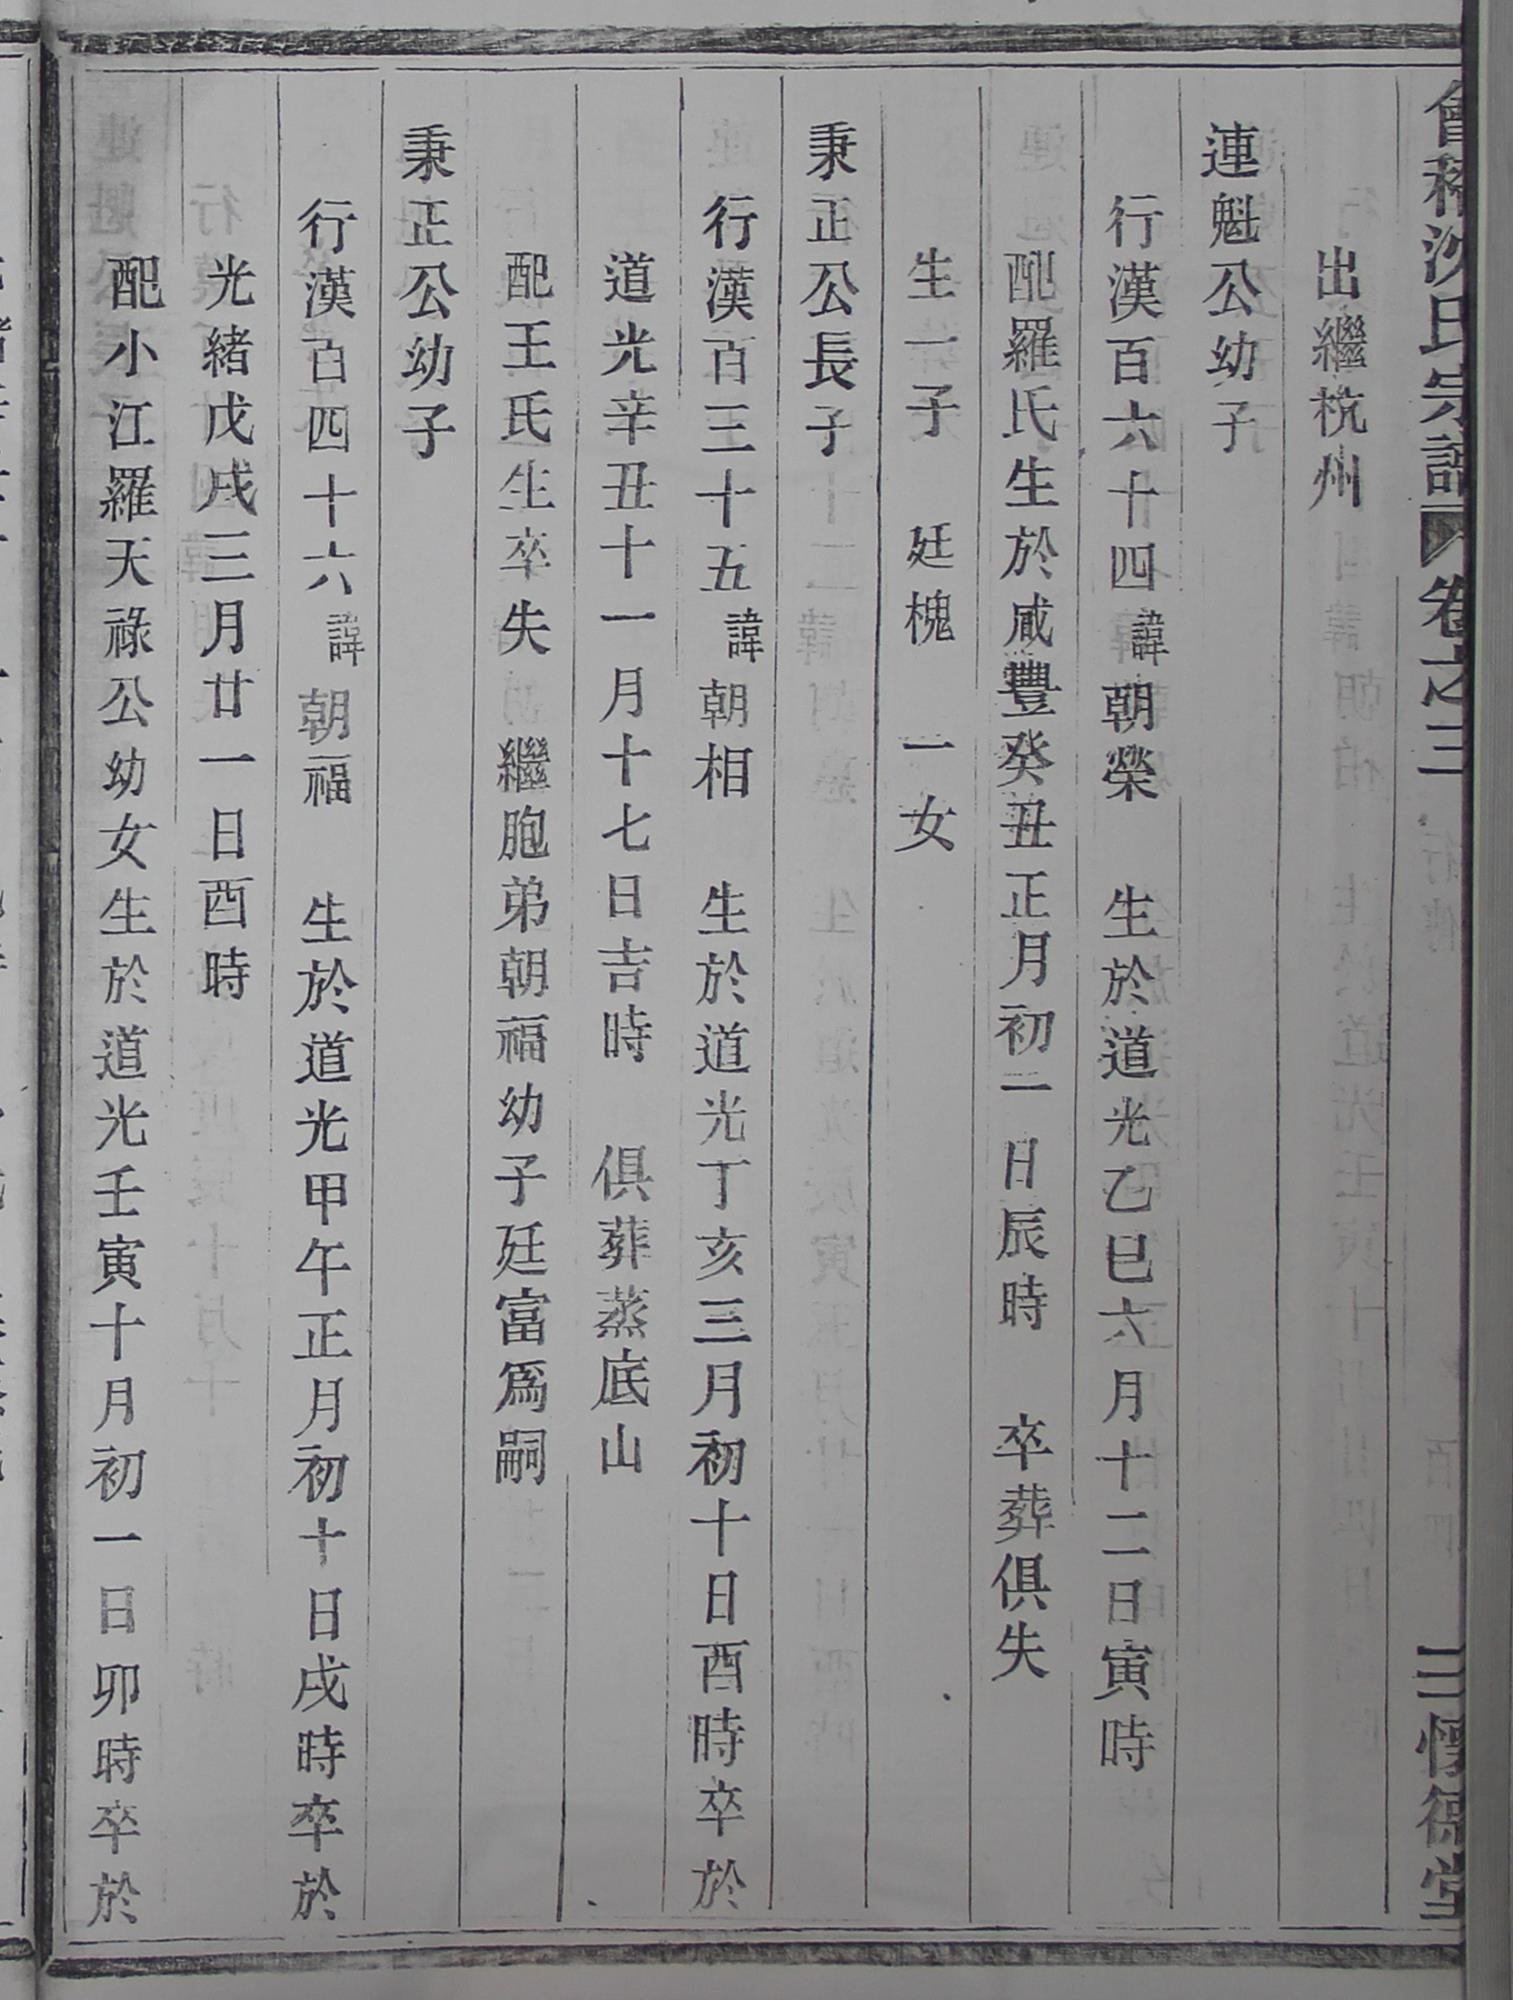 會稽沈氏宗譜 卷之三 行傳 三懷德堂
出繼杭州
連魁公幼子
行漢百六十四諱朝榮 生於道光乙巳六月十二日寅時
配羅氏生於咸豐癸丑正月初二日辰時 卒葬俱失
生一子 廷槐 一女
秉正公長子
行漢百三十五諱朝相 生於道光丁亥三月初十日酉時卒於
道光辛丑十一月十七日吉時 俱葬蒸底山
配王氏生卒失 繼胞弟朝福幼子廷富爲嗣
秉正公幼子
行漢百四十六諱朝福 生於道光甲午正月初十日戌時卒於
光緒戊戌三月廿一日酉時
配小江羅天祿公幼女生於道光壬寅十月初一日卯時卒於